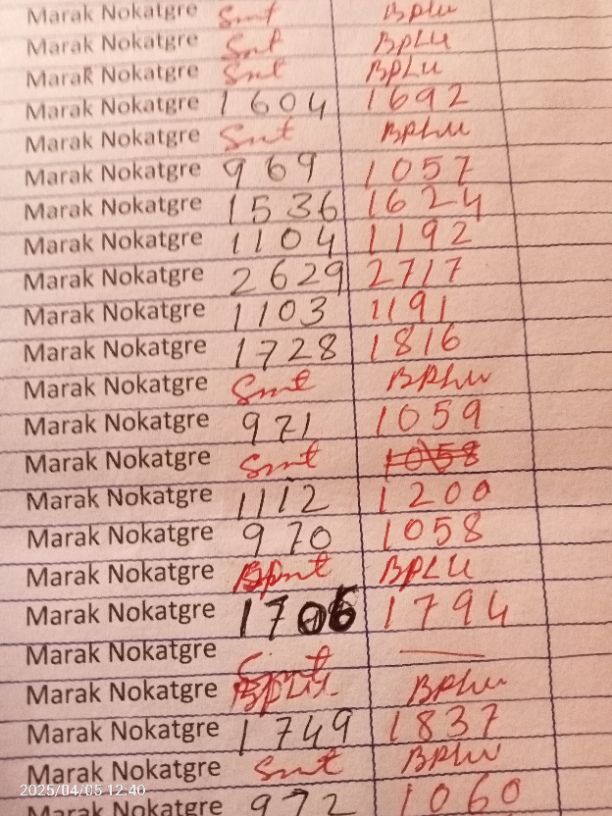 Marak Nokatgre Smt BPLu
Marak Nokatgre Smt BPLU
Marak Nokatgre Smt BPLU
Marak Nokatgre 1604 1692
Marak Nokatgre Smt BPLu
Marak Nokatgre 969 1057
Marak Nokatgre 1536 1624
Marak Nokatgre 1104 1192
Marak Nokatgre 2629 2717
Marak Nokatgre 1103 1191
Marak Nokatgre 1728 1816
Marak Nokatgre Smt BPLu
Marak Nokatgre 971 1059
Marak Nokatgre Smt 1058
Marak Nokatgre 1112 1200
Marak Nokatgre 970 1058
Marak Nokatgre BPLU
Marak Nokatgre 1706 1794
Marak Nokatgre Smt
Marak Nokatgre BPLu
Marak Nokatgre 1749 1837
Marak Nokatgre Smt BPLu
Marak Nokatgre 972 1060
2025/04/05 12:40